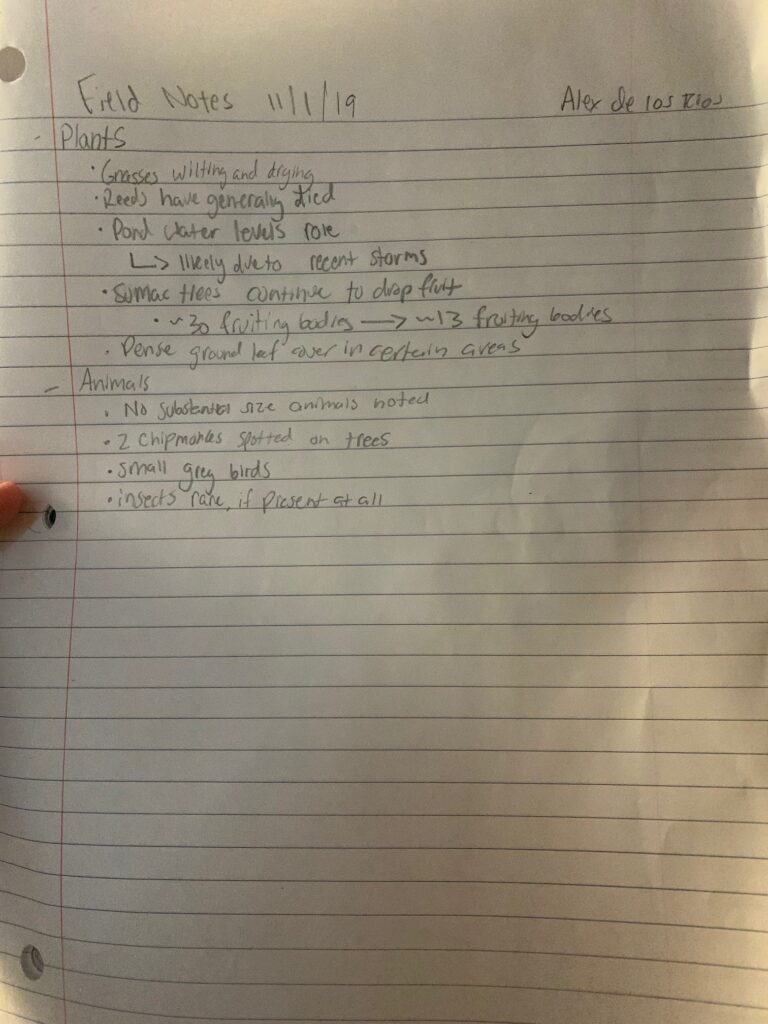 Field Notes 11/1/19 Alex de los Rios
- Plants
· Grasses wilting and drying
· Reeds have generally died
· Pond water levels role
↳ likely due to recent storms
· Sumac trees continue to drop fruit
· ~30 fruiting bodies → ~13 fruiting bodies
· Dense ground leaf cover in certain areas
- Animals
· No substantial size animals noted
· 2 Chipmonks spotted on trees
· small grey birds
· insects rare, if present at all